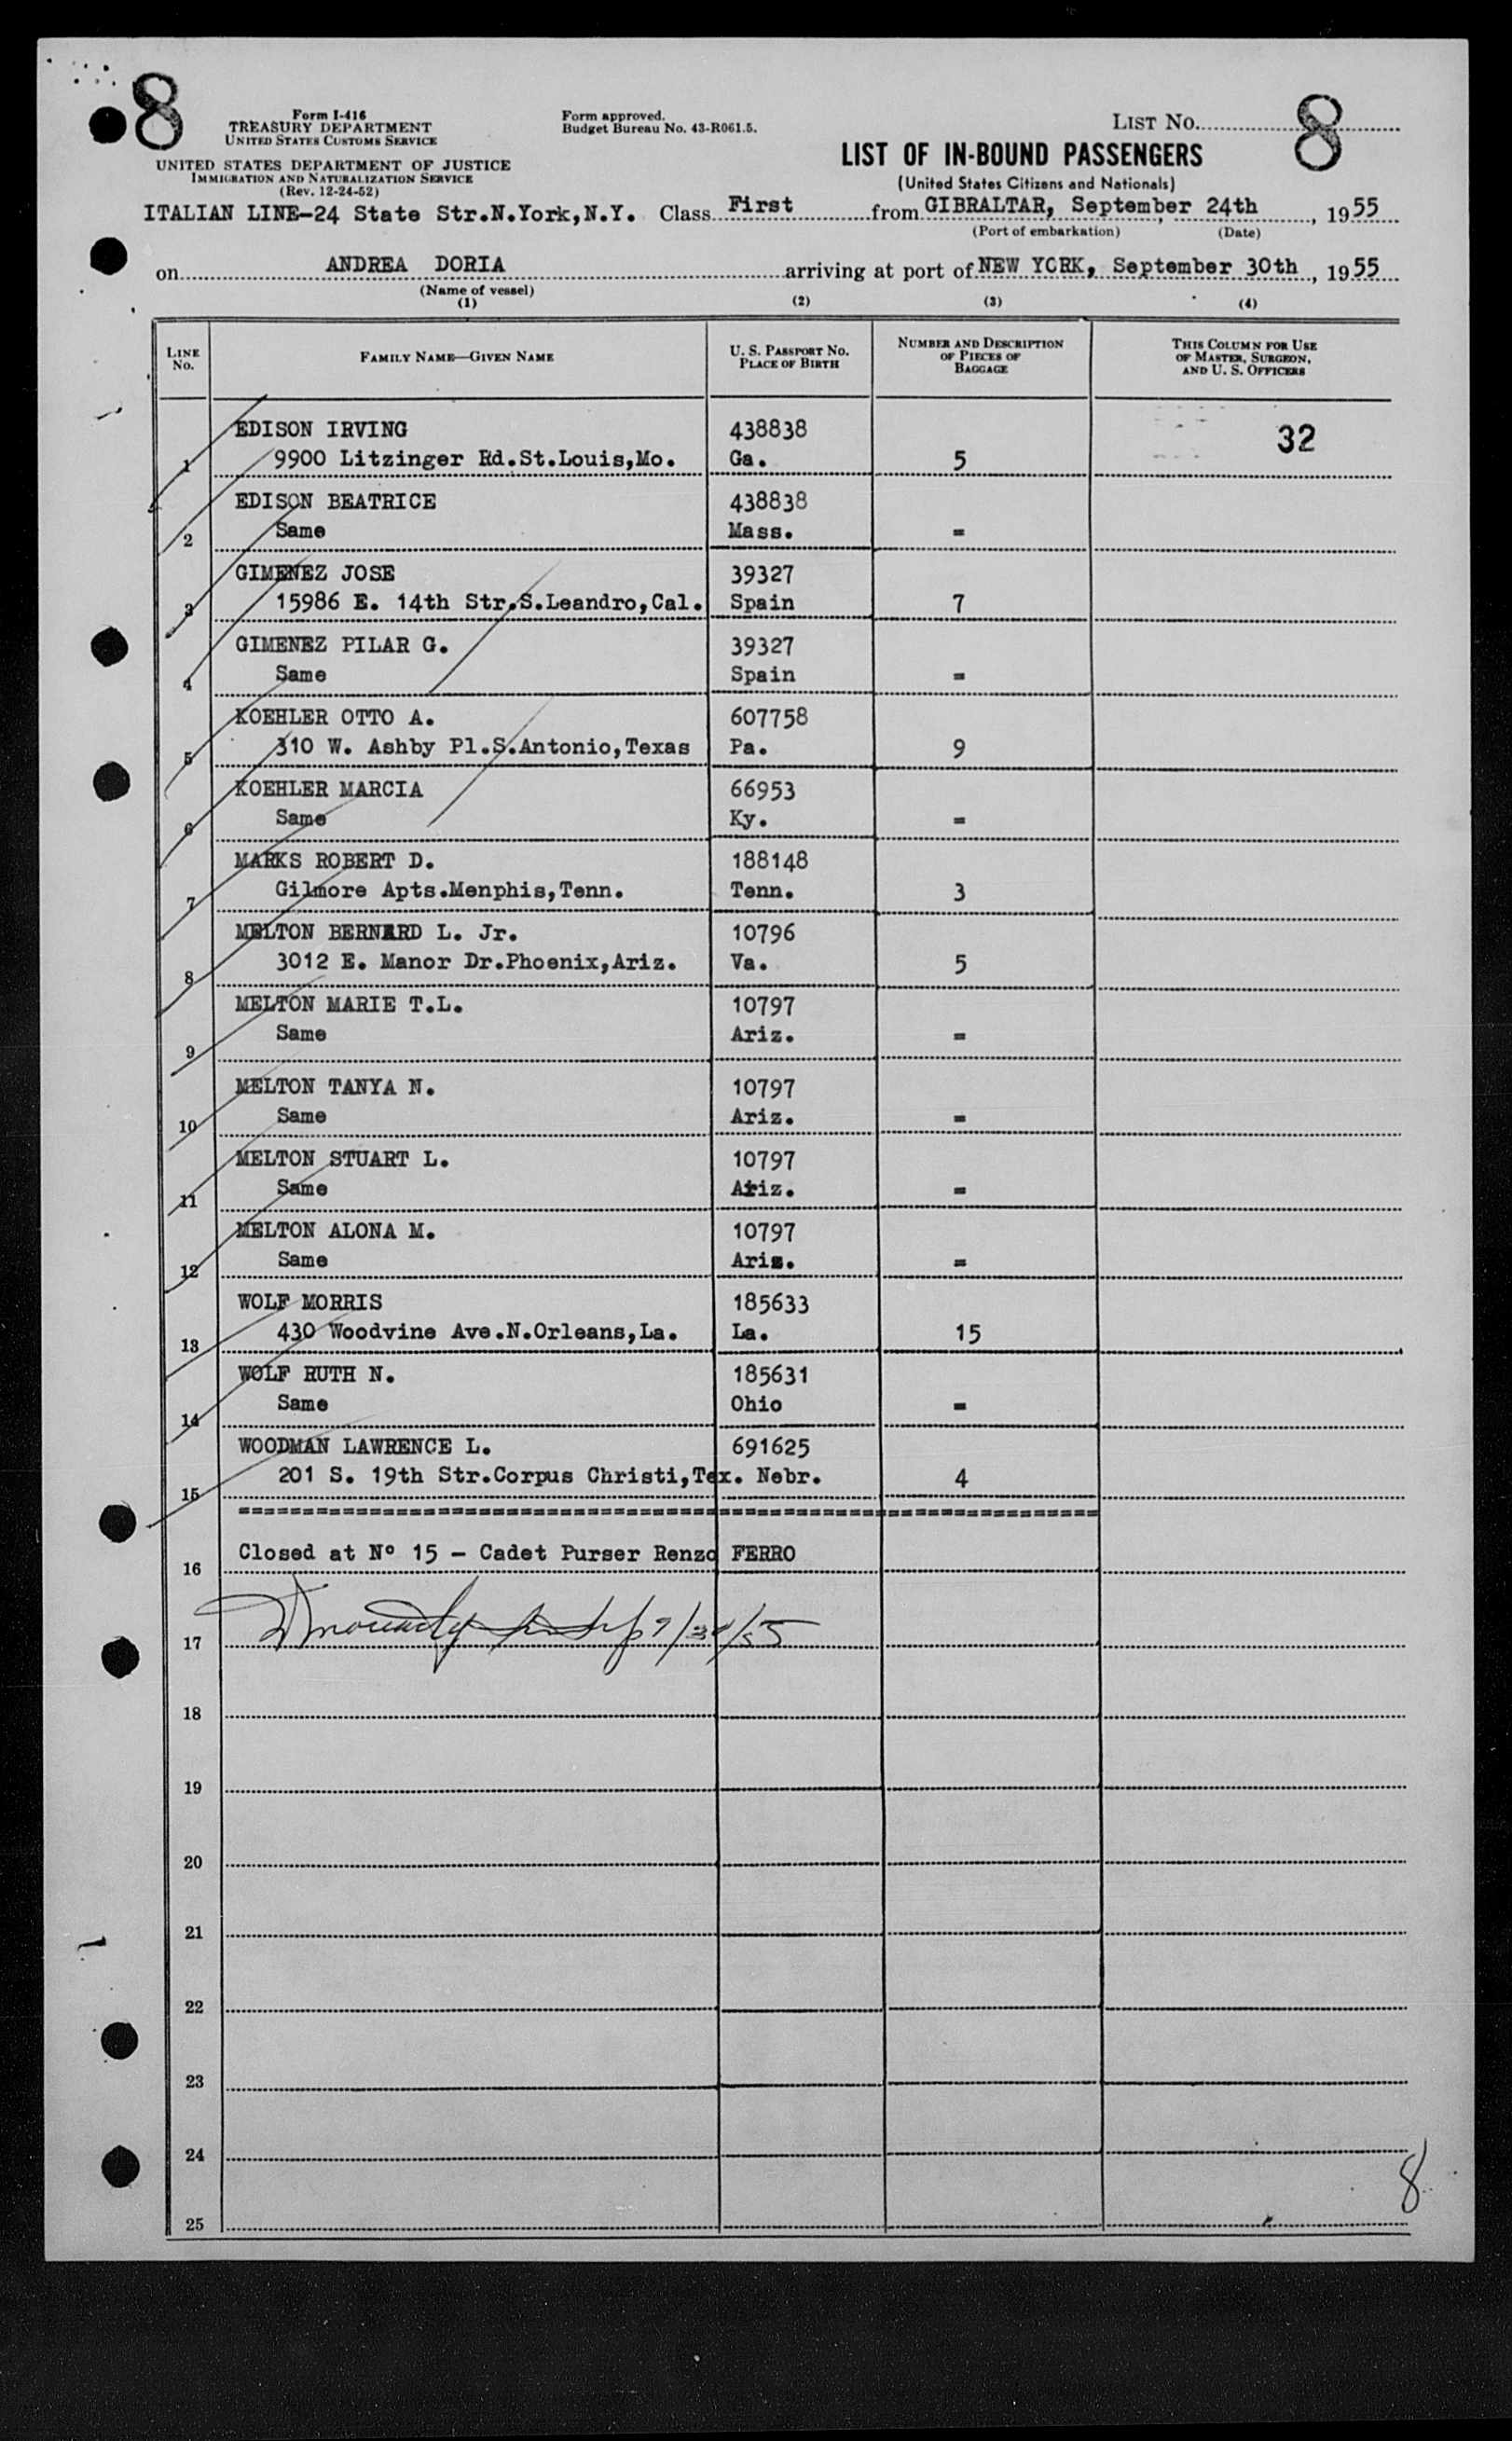 8
Form I-416
TREASURY DEPARTMENT
UNITED STATES CUSTOMS SERVICE
UNITED STATES DEPARTMENT OF JUSTICE
IMMIGRATION AND NATURALIZATION SERVICE
(Rev. 12-24-52)
Form approved.
Budget Bureau No. 43-R061.5.
LIST NO. 8
LIST OF IN-BOUND PASSENGERS
(United States Citizens and Nationals)
ITALIAN LINE-24 State Str.N.York,N.Y. Class First from GIBRALTAR, September 24th, 1955
(Port of embarkation) (Date)
on ANDREA DORIA arriving at port of NEW YORK, September 30th, 1955
(Name of vessel)
(1) (2) (3) (4)
LINE NO. FAMILY NAME—GIVEN NAME U. S. PASSPORT NO. PLACE OF BIRTH NUMBER AND DESCRIPTION OF PIECES OF BAGGAGE THIS COLUMN FOR USE OF MASTER, SURGEON, AND U. S. OFFICERS
EDISON IRVING 438838 32
1 9900 Litzinger Rd.St.Louis,Mo. Ga. 5
EDISON BEATRICE 438838
2 Same Mass. =
GIMENEZ JOSE 39327
3 15986 E. 14th Str.S.Leandro,Cal. Spain 7
GIMENEZ PILAR G. 39327
4 Same Spain =
KOEHLER OTTO A. 607758
5 310 W. Ashby Pl.S.Antonio,Texas Pa. 9
KOEHLER MARCIA 66953
6 Same Ky. =
MARKS ROBERT D. 188148
7 Gilmore Apts.Menphis,Tenn. Tenn. 3
MELTON BERNARD L. Jr. 10796
8 3012 E. Manor Dr.Phoenix,Ariz. Va. 5
MELTON MARIE T.L. 10797
9 Same Ariz. =
MELTON TANYA N. 10797
10 Same Ariz. =
MELTON STUART L. 10797
11 Same Ariz. =
MELTON ALONA M. 10797
12 Same Ariz. =
WOLF MORRIS 185633
13 430 Woodvine Ave.N.Orleans,La. La. 15
WOLF RUTH N. 185631
14 Same Ohio =
WOODMAN LAWRENCE L. 691625
15 201 S. 19th Str.Corpus Christi,Tex. Nebr. 4
16 Closed at Nº 15 - Cadet Purser Renzo FERRO
17 9/30/55
18
19
20
21
22
23
24
8
25